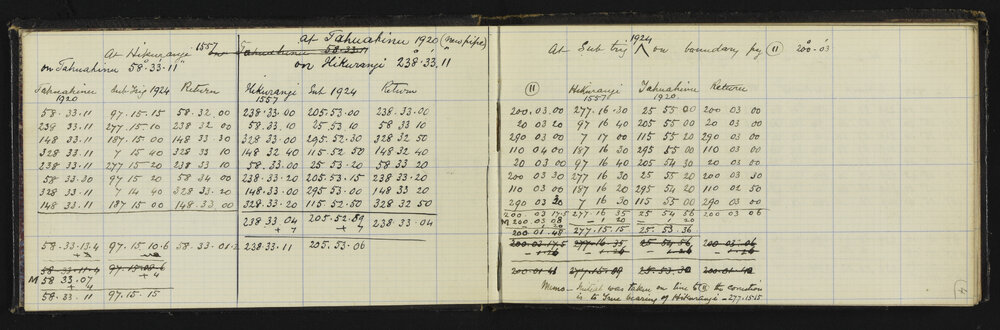 At Hikurangi 1557
on Tahuahinu 58°.33'.11"
Tahuahinu 1920 Sub Trig 1924 Return
58.33.11 97.15.15 58.32.00
238 33.11 277.15 10 238 32 00
148 33.11 187.15 00 148 33 30
328 33.11 7 15 40 328 33 10
238.33.11 277 15 20 238 33 10
58 33.30 97.15 20 58 34 00
328 33.11 7 14 40 328 33.20
148 33.11 187 15 00 148.33 00
58.33.13.4 97.15.10.6 58.33.01.2
58.33.11.4 97.15.00.6
+4
M 58 33.07
+4
58.33.11 97.15.15
at Tahuahinu 1920 (new pipe)
Tahuahinu 58.33.11
on Hikurangi 238°.33'.11"
Hikurangi 1557 Sub 1924 Return
238.33.00 205.53.00 238.33.00
58.33.10 25.53.10 58 33 10
328 33.00 295.52.30 328 32 50
148 32 40 115 52 50 148 32 40
58.33.00 25.53.20 58 33 20
238 33.20 205.53.15 238 33.20
148.33.00 295 53.00 148 33 20
328.33.20 115.52.50 328 32 50
238 33 04 205.52.59 238.33.04
+7 +7
238.33.11 205.53.06
At Sub trig 1924 on boundary peg (11) 200°.03'
(11) Hikurangi 1557 Tahuahinu 1920 Return
200.03 00 277.16.30 25 55 00 200 03 00
20 03 20 97 16 40 205 55 00 20 03 00
290 03 00 7 17 00 115 55 20 290 03 00
110 04 00 187 16 30 295 55 00 110 03 00
20 03 00 97 16 40 205 54 30 20 03 00
200 03 30 277 16 30 25 55 20 200 03 30
110 03 00 187 16 20 295 54 20 110 02 50
290 03 30 7 16 30 115 55 00 290 03 00
200 03 17.5 277.16 35 25 54 56 200 03 06
M 200.03 08 - 1 20 - 1 20
200 01.48 277.15.15 25 53.36
200.03.17.5 277.16.35 25 54.56 200.03.06
- 1.26 - 1.26 - 1.26
200.01.41 277.15.09 25.53.30 200.01.40
Memo - Initial was taken on line to (11) the correction
is to True bearing of Hikurangi - 277.15.15